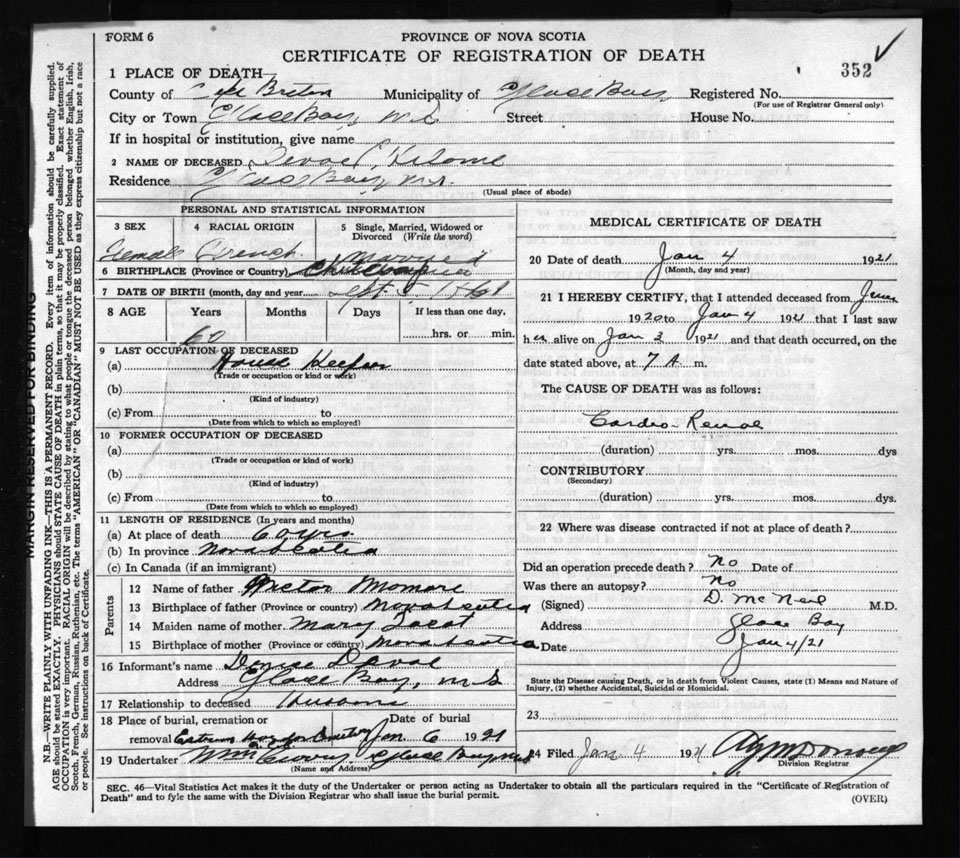 FORM 6
PROVINCE OF NOVA SCOTIA
CERTIFICATE OF REGISTRATION OF DEATH
1 PLACE OF DEATH
352
County of Cape Breton Municipality of Glace Bay Registered No.
(For use of Registrar General only)
City or Town Glace Bay, N.S. Street House No.
If in hospital or institution, give name
2 NAME OF DECEASED
Residence Glace Bay, N.S.
(Usual place of abode)
PERSONAL AND STATISTICAL INFORMATION
3 SEX 4 RACIAL ORIGIN 5 Single, Married, Widowed or Divorced (Write the word)
Female French Married
6 BIRTHPLACE (Province or Country)
7 DATE OF BIRTH (month, day and year Sept 5
8 AGE Years Months Days If less than one day,
60 hrs. or min.
9 LAST OCCUPATION OF DECEASED
(a) House Keeper
(Trade or occupation or kind or work)
(b)
(Kind of industry)
(c) From to
(Date from which to which so employed)
10 FORMER OCCUPATION OF DECEASED
(a)
(Trade or occupation or kind of work)
(b)
(Kind of industry)
(c) From to
(Date from which to which so employed)
11 LENGTH OF RESIDENCE (In years and months)
(a) At place of death
(b) In province Nova Scotia
(c) In Canada (if an immigrant)
Parents
12 Name of father
13 Birthplace of father (Province or country) Nova Scotia
14 Maiden name of mother Mary
15 Birthplace of mother (Province or country) Nova Scotia
16 Informant's name
Address Glace Bay, N.S.
17 Relationship to deceased Husband
18 Place of burial, cremation or Date of burial
removal Jan 6 1921
19 Undertaker Glace Bay
(Name and Address)
MEDICAL CERTIFICATE OF DEATH
20 Date of death Jan 4 1921
(Month, day and year)
21 I HEREBY CERTIFY, that I attended deceased from June
1920 to Jan 4 1921 that I last saw
her alive on Jan 3 1921 and that death occurred, on the
date stated above, at 7 A. m.
The CAUSE OF DEATH was as follows:
Cardio-Renal
(duration) yrs. mos. dys
CONTRIBUTORY
(Secondary)
(duration) yrs. mos. dys.
22 Where was disease contracted if not at place of death?
Did an operation precede death? No Date of
Was there an autopsy? No
(Signed) D. McNeil M.D.
Address Glace Bay
Date Jan 4/21
State the Disease causing Death, or in death from Violent Causes, state (1) Means and Nature of
Injury, (2) whether Accidental, Suicidal or Homicidal.
23
24 Filed Jan 4 1921
Division Registrar
SEC. 46—Vital Statistics Act makes it the duty of the Undertaker or person acting as Undertaker to obtain all the particulars required in the "Certificate of Registration of
Death" and to fyle the same with the Division Registrar who shall issue the burial permit.
(OVER)
MARGIN RESERVED FOR BINDING
N.B.—WRITE PLAINLY WITH UNFADING INK—THIS IS A PERMANENT RECORD. Every item of information should be carefully supplied.
AGE should be stated EXACTLY. PHYSICIANS should STATE CAUSE OF DEATH in plain terms, so that it may be properly classified. Exact statement of
OCCUPATION is very important. RACIAL ORIGIN will be described by stating to what people or tongue the deceased person belonged whether English, Irish,
Scotch, French, German, Russian, Ruthenian, etc. The terms "AMERICAN" OR "CANADIAN" MUST NOT BE USED as they express citizenship but not a race
or people. See instructions on back of Certificate.